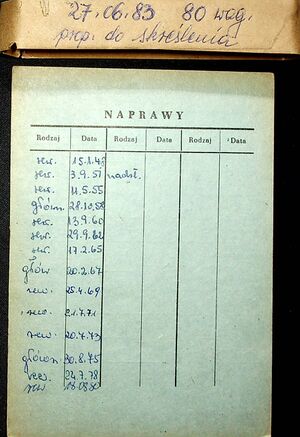 27.06.83 80 wag.
prop. do skreślenia
NAPRAWY
Rodzaj Data Rodzaj Data Rodzaj Data
rew. 15.1.48
rew. 3.9.51 nadzl.
rew. 11.5.55
główn. 28.10.58
rew. 13.9.60
rew. 29.9.62
rew. 17.2.65
główn 20.2.67
rew. 25.4.69
rew. 21.7.71
rew. 20.7.73
główn 30.8.75
rew. 24.7.78
rew.